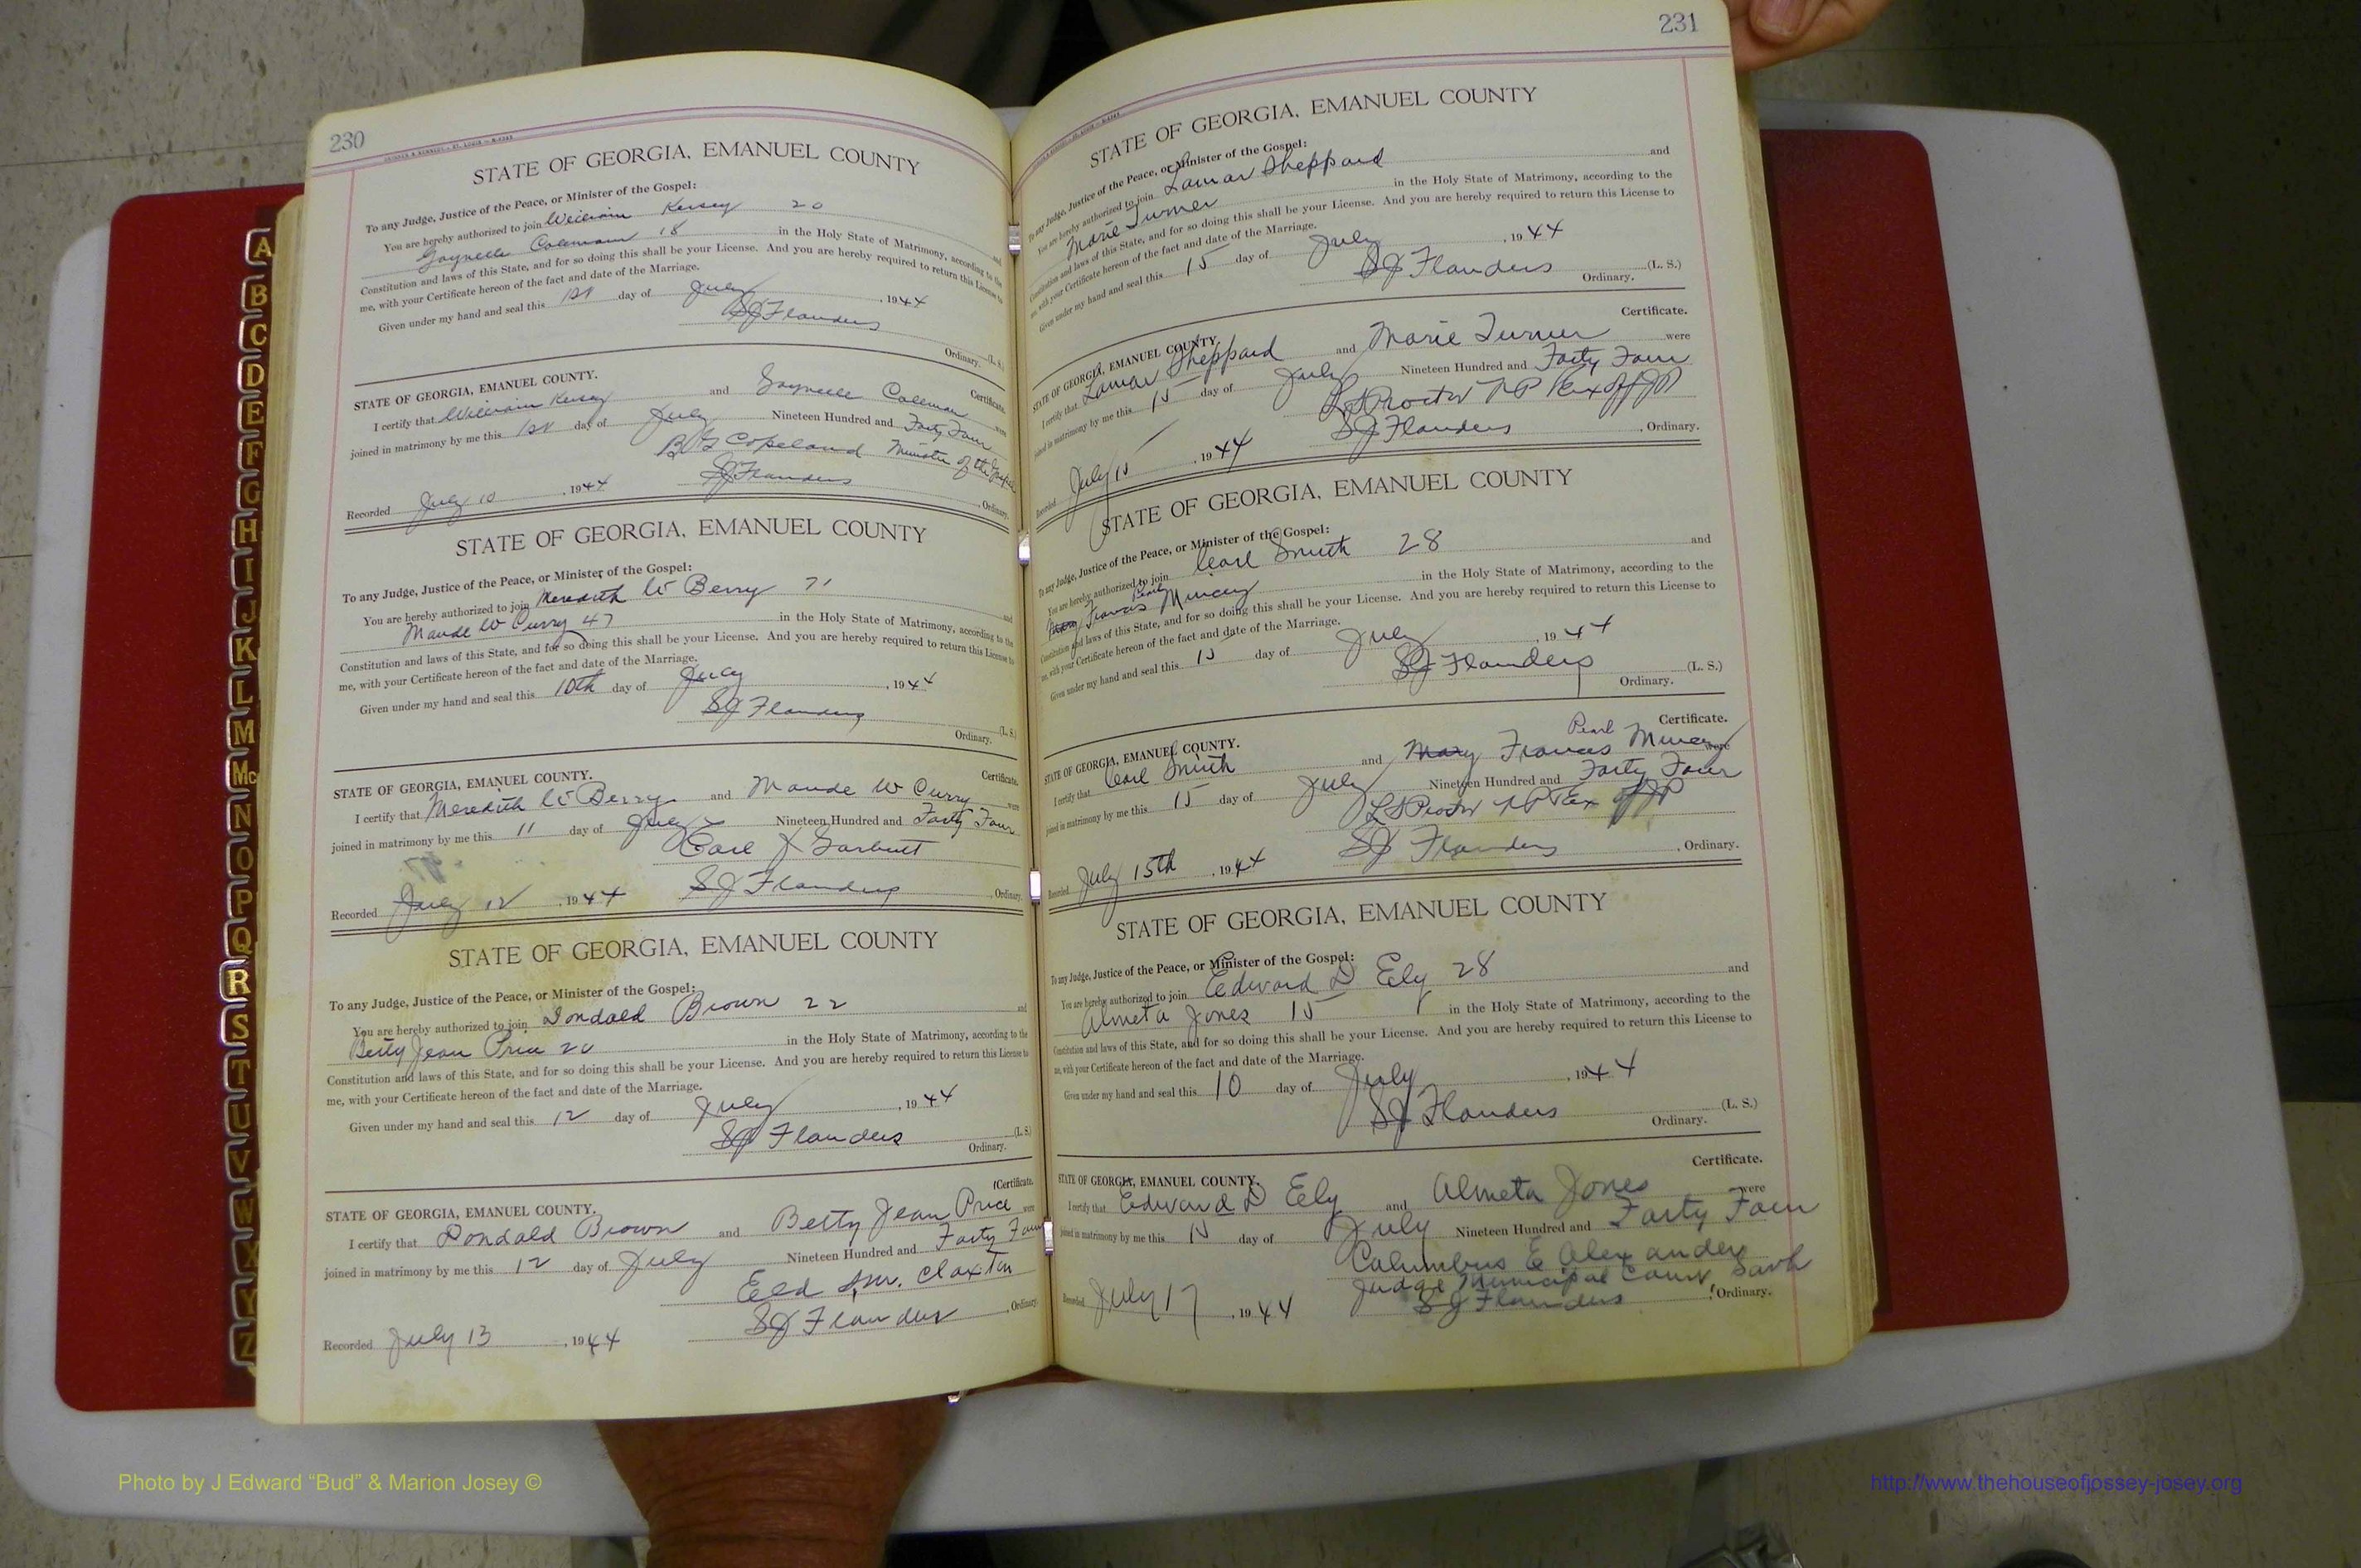 230
STATE OF GEORGIA, EMANUEL COUNTY
To any Judge, Justice of the Peace, or Minister of the Gospel:
You are hereby authorized to join William Kersey 20 and
Gaynelle Coleman 18 in the Holy State of Matrimony, according to the
Constitution and laws of this State, and for so doing this shall be your License. And you are hereby required to return this License to
me, with your Certificate hereon of the fact and date of the Marriage.
Given under my hand and seal this 1st day of July, 1944
SJ Flanders (L. S.)
Ordinary.
STATE OF GEORGIA, EMANUEL COUNTY. Certificate.
I certify that William Kersey and Gaynelle Coleman were
joined in matrimony by me this 1st day of July Nineteen Hundred and Forty Four
Copeland Minister of the Gospel
Recorded July 10, 1944 SJ Flanders, Ordinary.
STATE OF GEORGIA, EMANUEL COUNTY
To any Judge, Justice of the Peace, or Minister of the Gospel:
You are hereby authorized to join Meredith W Berry 71 and
Maude W Curry 47 in the Holy State of Matrimony, according to the
Constitution and laws of this State, and for so doing this shall be your License. And you are hereby required to return this License to
me, with your Certificate hereon of the fact and date of the Marriage.
Given under my hand and seal this 10th day of July, 1944
SJ Flanders (L. S.)
Ordinary.
STATE OF GEORGIA, EMANUEL COUNTY. Certificate.
I certify that Meredith W Berry and Maude W Curry were
joined in matrimony by me this 11 day of July Nineteen Hundred and Forty Four
Carl J Garbutt
Recorded July 12, 1944 SJ Flanders, Ordinary.
STATE OF GEORGIA, EMANUEL COUNTY
To any Judge, Justice of the Peace, or Minister of the Gospel:
You are hereby authorized to join Dondald Brown 22 and
Betty Jean Price 20 in the Holy State of Matrimony, according to the
Constitution and laws of this State, and for so doing this shall be your License. And you are hereby required to return this License to
me, with your Certificate hereon of the fact and date of the Marriage.
Given under my hand and seal this 12 day of July, 1944
SJ Flanders (L. S.)
Ordinary.
STATE OF GEORGIA, EMANUEL COUNTY. Certificate.
I certify that Dondald Brown and Betty Jean Price were
joined in matrimony by me this 12 day of July Nineteen Hundred and Forty Four
Eld Claxton
Recorded July 13, 1944 SJ Flanders, Ordinary.
231
STATE OF GEORGIA, EMANUEL COUNTY
To any Judge, Justice of the Peace, or Minister of the Gospel:
You are hereby authorized to join Lamar Sheppard and
Marie Turner in the Holy State of Matrimony, according to the
Constitution and laws of this State, and for so doing this shall be your License. And you are hereby required to return this License to
me, with your Certificate hereon of the fact and date of the Marriage.
Given under my hand and seal this 15 day of July, 1944
SJ Flanders (L. S.)
Ordinary.
STATE OF GEORGIA, EMANUEL COUNTY. Certificate.
I certify that Lamar Sheppard and Marie Turner were
joined in matrimony by me this 15 day of July Nineteen Hundred and Forty Four
LS Proctor NP & ex off JP
Recorded July 15, 1944 SJ Flanders, Ordinary.
STATE OF GEORGIA, EMANUEL COUNTY
To any Judge, Justice of the Peace, or Minister of the Gospel:
You are hereby authorized to join Carl Smith 28 and
Mary Frances Pearl Mincey in the Holy State of Matrimony, according to the
Constitution and laws of this State, and for so doing this shall be your License. And you are hereby required to return this License to
me, with your Certificate hereon of the fact and date of the Marriage.
Given under my hand and seal this 15 day of July, 1944
SJ Flanders (L. S.)
Ordinary.
STATE OF GEORGIA, EMANUEL COUNTY. Certificate.
I certify that Carl Smith and Mary Frances Pearl Mincey were
joined in matrimony by me this 15 day of July Nineteen Hundred and Forty Four
LS Proctor NP & ex off JP
Recorded July 15th, 1944 SJ Flanders, Ordinary.
STATE OF GEORGIA, EMANUEL COUNTY
To any Judge, Justice of the Peace, or Minister of the Gospel:
You are hereby authorized to join Edward D Ely 28 and
Almeta Jones 15 in the Holy State of Matrimony, according to the
Constitution and laws of this State, and for so doing this shall be your License. And you are hereby required to return this License to
me, with your Certificate hereon of the fact and date of the Marriage.
Given under my hand and seal this 10 day of July, 1944
SJ Flanders (L. S.)
Ordinary.
STATE OF GEORGIA, EMANUEL COUNTY. Certificate.
I certify that Edward D Ely and Almeta Jones were
joined in matrimony by me this 15 day of July Nineteen Hundred and Forty Four
Columbus E Alexander
Judge Municipal Court Savh
Recorded July 17, 1944 SJ Flanders, Ordinary.
A
B
C
D
E
F
G
H
I
J
K
L
M
Mc
N
O
P
Q
R
S
T
U
V
W
X
Y
Z
Photo by J Edward “Bud” & Marion Josey ©
http://www.thehouseofjossey-josey.org